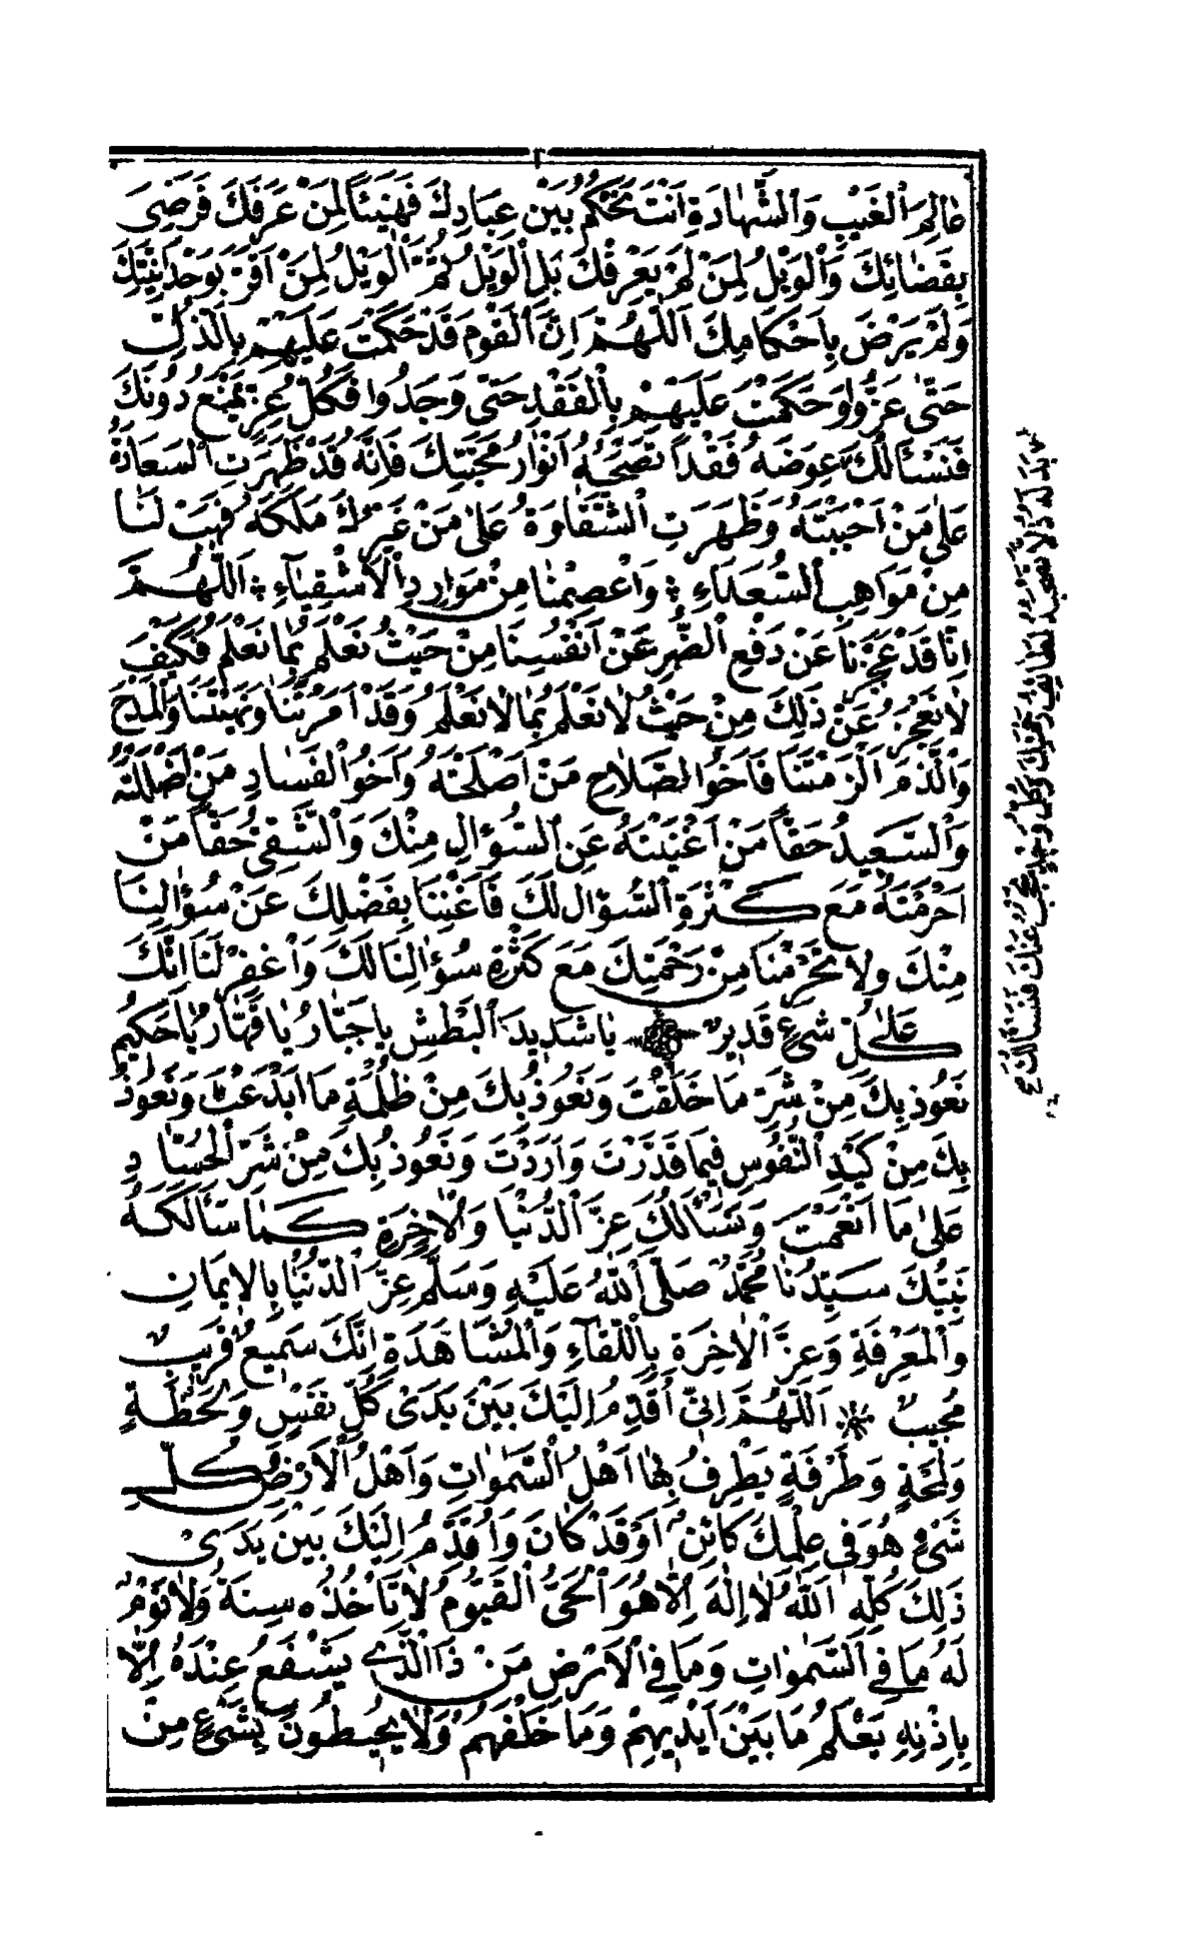 عَالِمَ ٱلْغَيْبِ وَٱلشَّهَادَةِ اَنْتَ تَحْكُمُ بَيْنَ عِبَادِكَ فَهَنِيْئًا لِمَنْ عَرَفَكَ فَرَضِىَ
بِقَضَائِكَ وَٱلْوَيْلُ لِمَنْ لَمْ يَعْرِفْكَ بَلِ ٱلْوَيْلُ ثُمَّ ٱلْوَيْلُ لِمَنْ اَقَرَّ بِوَحْدَانِيَّتِكَ
وَلَمْ يَرْضَ بِاَحْكَامِكَ اَللّٰهُمَّ اِنَّ ٱلْقَوْمَ قَدْ حَكَمْتَ عَلَيْهِمْ بِالذُّلِّ
حَتّٰى عَزُّوا وَحَكَمْتَ عَلَيْهِمْ بِٱلْفَقْدِ حَتّٰى وَجَدُوا فَكُلُّ عِزٍّ يَمْنَعُ دُونَكَ
فَنَسْأَلُكَ عِوَضَهُ فَقْدًا تَصْحَبُهُ اَنْوَارُ مَحَبَّتِكَ فَاِنَّهُ قَدْ ظَهَرَتِ ٱلسَّعَادَةُ
عَلٰى مَنْ اَحْبَبْتَهُ وَظَهَرَتِ ٱلشَّقَاوَةُ عَلٰى مَنْ غَيْرُكَ مَلَكَهُ فَهَبْ لَنَا
مِنْ مَوَاهِبِ ٱلسُّعَدَاءِ وَاعْصِمْنَا مِنْ مَوَارِدِ ٱلْاَشْقِيَآءِ اَللّٰهُمَّ
اِنَّا قَدْ عَجَزْنَا عَنْ دَفْعِ ٱلضُّرِّ عَنْ اَنْفُسِنَا مِنْ حَيْثُ نَعْلَمُ بِمَا نَعْلَمُ فَكَيْفَ
لَا نَعْجِزُ عَنْ ذٰلِكَ مِنْ حَيْثُ لَا نَعْلَمُ بِمَا لَا نَعْلَمُ وَقَدْ اَمَرْتَنَا وَنَهَيْتَنَا وَٱلْمَدْحَ
وَٱلذَّمَّ اَلْزَمْتَنَا فَاَخُو ٱلصَّلَاحِ مَنْ اَصْلَحْتَهُ وَاَخُو ٱلْفَسَادِ مَنْ اَضْلَلْتَهُ
وَٱلسَّعِيدُ حَقًّا مَنْ اَغْنَيْتَهُ عَنِ ٱلسُّؤَالِ مِنْكَ وَٱلشَّقِىُّ حَقًّا مَنْ
اَحْرَمْتَهُ مَعَ كَثْرَةِ ٱلسُّؤَالِ لَكَ فَاَغْنِنَا بِفَضْلِكَ عَنْ سُؤَالِنَا
مِنْكَ وَلَا تَحْرِمْنَا مِنْ رَحْمَتِكَ مَعَ كَثْرَةِ سُؤَالِنَا لَكَ وَاغْفِرْ لَنَا اِنَّكَ
عَلٰى كُلِّ شَىْءٍ قَدِيرٌ يَا شَدِيدَ ٱلْبَطْشِ يَا جَبَّارُ يَا قَهَّارُ يَا حَكِيمُ
نَعُوذُ بِكَ مِنْ شَرِّ مَا خَلَقْتَ وَنَعُوذُ بِكَ مِنْ ظُلْمَةِ مَا اَبْدَعْتَ وَنَعُوذُ
بِكَ مِنْ كَيْدِ ٱلنُّفُوسِ فِيمَا قَدَّرْتَ وَاَرَدْتَ وَنَعُوذُ بِكَ مِنْ شَرِّ ٱلْحُسَّادِ
عَلٰى مَا اَنْعَمْتَ وَنَسْأَلُكَ عِزَّ ٱلدُّنْيَا وَٱلْاٰخِرَةِ كَمَا سَأَلَكَهُ
نَبِيُّكَ سَيِّدُنَا مُحَمَّدٌ صَلَّى ٱللّٰهُ عَلَيْهِ وَسَلَّمَ عِزَّ ٱلدُّنْيَا بِالْاِيمَانِ
وَٱلْمَعْرِفَةِ وَعِزَّ ٱلْاٰخِرَةِ بِاللِّقَآءِ وَٱلْمُشَاهَدَةِ اِنَّكَ سَمِيعٌ قَرِيبٌ
مُجِيبٌ اَللّٰهُمَّ اِنِّى اُقَدِّمُ اِلَيْكَ بَيْنَ يَدَىْ كُلِّ نَفَسٍ وَلَحْظَةٍ
وَلَمْحَةٍ وَطَرْفَةٍ يَطْرِفُ بِهَا اَهْلُ ٱلسَّمٰوَاتِ وَاَهْلُ ٱلْاَرْضِ كُلِّ
شَىْءٍ هُوَ فِى عِلْمِكَ كَائِنٌ اَوْ قَدْ كَانَ وَاُقَدِّمُ اِلَيْكَ بَيْنَ يَدَىْ
ذٰلِكَ كُلِّهِ اَللّٰهُ لَا اِلٰهَ اِلَّا هُوَ ٱلْحَىُّ ٱلْقَيُّومُ لَا تَأْخُذُهُ سِنَةٌ وَلَا نَوْمٌ
لَهُ مَا فِى ٱلسَّمٰوَاتِ وَمَا فِى ٱلْاَرْضِ مَنْ ذَا ٱلَّذِى يَشْفَعُ عِنْدَهُ اِلَّا
بِاِذْنِهِ يَعْلَمُ مَا بَيْنَ اَيْدِيهِمْ وَمَا خَلْفَهُمْ وَلَا يُحِيطُونَ بِشَىْءٍ مِنْ